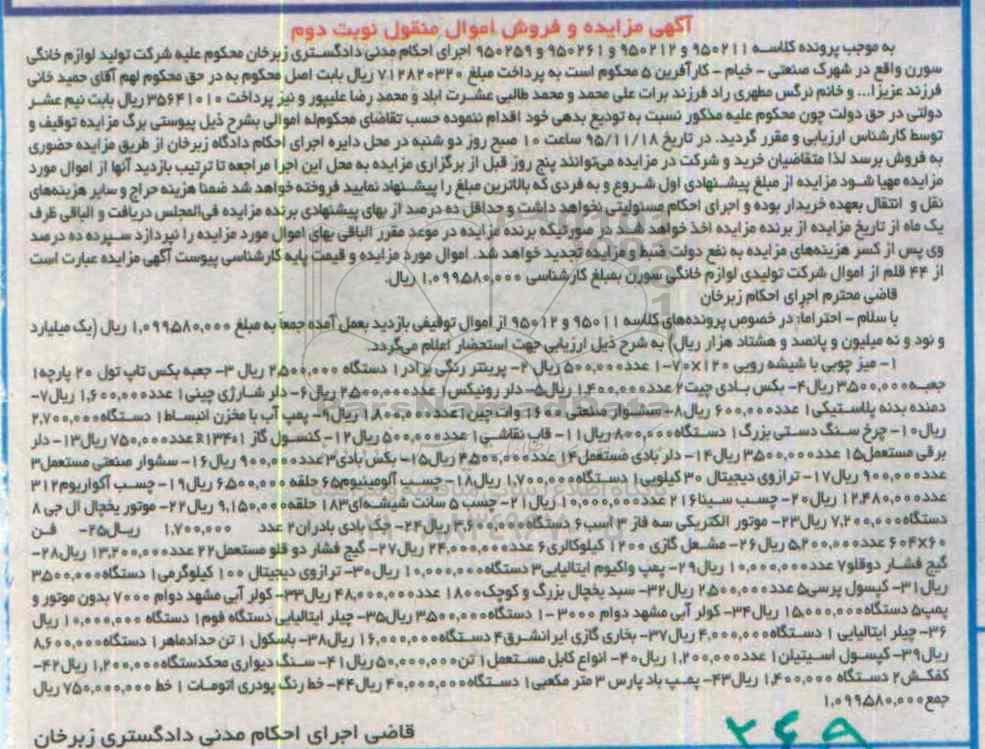 آگهی مزایده و فروش اموال منقول نوبت دوم
به موجب پرونده کلاسه ۹۵۰۲۱۱ و ۹۵۰۲۱۲ و ۹۵۰۲۶۱ و ۹۵۰۲۵۹ اجرای احکام مدنی دادگستری زبرخان محکوم علیه شرکت تولید لوازم خانگی
سورن واقع در شهرک صنعتی - خیام - کارآفرین ۵ محکوم است به پرداخت مبلغ ۷۱۲۸۲۰۳۲۰ ریال بابت اصل محکوم به در حق محکوم لهم آقای حمید خانی
فرزند عزیزا... و خانم نرگس مطهری راد فرزند برات علی محمد و محمد طالبی عشرت اباد و محمد رضا علیپور و نیز پرداخت ۳۵۶۴۱۰۱۰ ریال بابت نیم عشر
دولتی در حق دولت چون محکوم علیه مذکور نسبت به تودیع بدهی خود اقدام ننموده حسب تقاضای محکوم‌له اموالی بشرح ذیل پیوستی برگ مزایده توقیف و
توسط کارشناس ارزیابی و مقرر گردید. در تاریخ ۹۵/۱۱/۱۸ ساعت ۱۰ صبح روز دو شنبه در محل دایره اجرای احکام دادگاه زبرخان از طریق مزایده حضوری
به فروش برسد لذا متقاضیان خرید و شرکت در مزایده می‌توانند پنج روز قبل از برگزاری مزایده به محل این اجرا مراجعه تا ترتیب بازدید آنها از اموال مورد
مزایده مهیا شود مزایده از مبلغ پیشنهادی اول شروع و به فردی که بالاترین مبلغ را پیشنهاد نمایید فروخته خواهد شد ضمنا هزینه حراج و سایر هزینه‌های
نقل و انتقال بعهده خریدار بوده و اجرای احکام مسئولیتی نخواهد داشت و حداقل ده درصد از بهای پیشنهادی برنده مزایده فی‌المجلس دریافت و الباقی ظرف
یک ماه از تاریخ مزایده از برنده مزایده اخذ خواهد شد در صورتیکه برنده مزایده در موعد مقرر الباقی بهای اموال مورد مزایده را نپردازد سپرده ده درصد
وی پس از کسر هزینه‌های مزایده به نفع دولت ضبط و مزایده تجدید خواهد شد. اموال مورد مزایده و قیمت پایه کارشناسی پیوست آگهی مزایده عبارت است
از ۴۴ قلم از اموال شرکت تولیدی لوازم خانگی سورن بمبلغ کارشناسی ۱,۰۹۹,۵۸۰,۰۰۰ ریال.
قاضی محترم اجرای احکام زبرخان
با سلام - احتراما: در خصوص پرونده‌های کلاسه ۹۵۰۱۱ و ۹۵۰۱۲ از اموال توقیفی بازدید بعمل آمده جمعا به مبلغ ۱,۰۹۹,۵۸۰,۰۰۰ ریال (یک میلیارد
و نود و نه میلیون و پانصد و هشتاد هزار ریال) به شرح ذیل ارزیابی جهت استحضار اعلام می‌گردد.
۱- میز چوبی با شیشه رویی ۱۲۰×۷۰-۱ عدد ۵۰۰,۰۰۰ ریال ۲- پرینتر رنگی برادر ۱ دستگاه ۲,۵۰۰,۰۰۰ ریال ۳- جعبه بکس تاپ تول ۲۰ پارچه۱
جعبه۳,۵۰۰,۰۰۰ ریال۴- بکس بادی چیت۲ عدد۱,۴۰۰,۰۰۰ ریال۵- دلر رونیکس۱ عدد۲,۵۰۰,۰۰۰ ریال۶- دلر شارژی چینی۱ عدد۱,۶۰۰,۰۰۰ ریال۷-
دمنده بدنه پلاستیکی۱ عدد۶۰۰,۰۰۰ ریال۸- سشوار صنعتی ۱۶۰۰ وات چین۱ عدد۱,۸۰۰,۰۰۰ ریال۹- پمپ آب با مخزن انبساط۱ دستگاه۲,۷۰۰,۰۰۰
ریال۱۰- چرخ سنگ دستی بزرگ۱ دستگاه۸۰۰,۰۰۰ ریال۱۱- قاب نقاشی۱ عدد۵۰۰,۰۰۰ ریال۱۲- کنسول گاز R۱۳۴۰۱ عدد۷۵۰,۰۰۰ ریال۱۳- دلر
برقی مستعمل۱۵ عدد۳,۵۰۰,۰۰۰ ریال۱۴- دلر بادی مستعمل۱۴ عدد۳,۵۰۰,۰۰۰ ریال۱۵- بکس بادی۳ عدد۹۰۰,۰۰۰ ریال۱۶- سشوار صنعتی مستعمل۳
عدد۹۰۰,۰۰۰ ریال۱۷- ترازوی دیجیتال ۳۰ کیلویی۱ دستگاه۱,۷۰۰,۰۰۰ ریال۱۸- چسب آلومینیوم۶۵ حلقه ۶,۵۰۰,۰۰۰ ریال۱۹- چسب آکواریوم۳۱۲
عدد۱۲,۴۸۰,۰۰۰ ریال۲۰- چسب سینا۲۱۶ عدد۱۰,۰۰۰,۰۰۰ ریال۲۱- چسب ۵ سانت شیشه‌ای۱۸۳ حلقه۹,۱۵۰,۰۰۰ ریال۲۲- موتور یخچال ال جی ۸
دستگاه۷,۲۰۰,۰۰۰ ریال۲۳- موتور الکتریکی سه فاز ۳ اسب۶ دستگاه ۳,۶۰۰,۰۰۰ ریال۲۴- جک بادی بادران۲ عدد ۱,۷۰۰,۰۰۰ ریال۲۵- فن
۶۰×۶۰۴ عدد۵,۲۰۰,۰۰۰ ریال۲۶- مشعل گازی ۱۲۰۰ کیلوکالری۶ عدد۲۴,۰۰۰,۰۰۰ ریال۲۷- گیج فشار دو قلو مستعمل۲۲ عدد۱۳,۲۰۰,۰۰۰ ریال۲۸-
گیج فشار دوقلو۷ عدد۱۰,۰۰۰,۰۰۰ ریال۲۹- پمپ واکیوم ایتالیایی۳ دستگاه۱۰,۰۰۰,۰۰۰ ریال۳۰- ترازوی دیجیتال ۱۰۰ کیلوگرمی۱ دستگاه۳,۵۰۰,۰۰۰
ریال۳۱- کپسول پرسی۵ عدد۲,۵۰۰,۰۰۰ ریال۳۲- سبد یخچال بزرگ و کوچک۱۸۰۰ عدد۴۸,۰۰۰,۰۰۰ ریال۳۳- کولر آبی مشهد دوام ۷۰۰۰ بدون موتور و
پمپ۵ دستگاه۱۵,۰۰۰,۰۰۰ ریال۳۴- کولر آبی مشهد دوام ۳۰۰۰-۱ دستگاه۳,۵۰۰,۰۰۰ ریال۳۵- چیلر ایتالیایی دستگاه فوم۱ دستگاه ۱۰,۰۰۰,۰۰۰ ریال
۳۶- چیلر ایتالیایی ۱ دستگاه۴,۰۰۰,۰۰۰ ریال۳۷- بخاری گازی ایرانشرق۴ دستگاه۱۶,۰۰۰,۰۰۰ ریال۳۸- باسکول ۱ تن حدادماهر۱ دستگاه۸,۶۰۰,۰۰۰
ریال۳۹- کپسول اسیتیلن۱ عدد۱,۲۰۰,۰۰۰ ریال۴۰- انواع کابل مستعمل۱ تن۵۰,۰۰۰,۰۰۰ ریال۴۱- سنگ دیواری محکدستگاه۱,۲۰۰,۰۰۰ ریال۴۲-
کفکش۲ دستگاه ۱,۴۰۰,۰۰۰ ریال۴۳- پمپ باد پارس ۳ متر مکعبی۱ دستگاه۴۰,۰۰۰,۰۰۰ ریال۴۴- خط رنگ پودری اتومات ۱ خط ۷۵۰,۰۰۰,۰۰۰ ریال
جمع۱,۰۹۹,۵۸۰,۰۰۰
قاضی اجرای احکام مدنی دادگستری زبرخان
۲۶۹